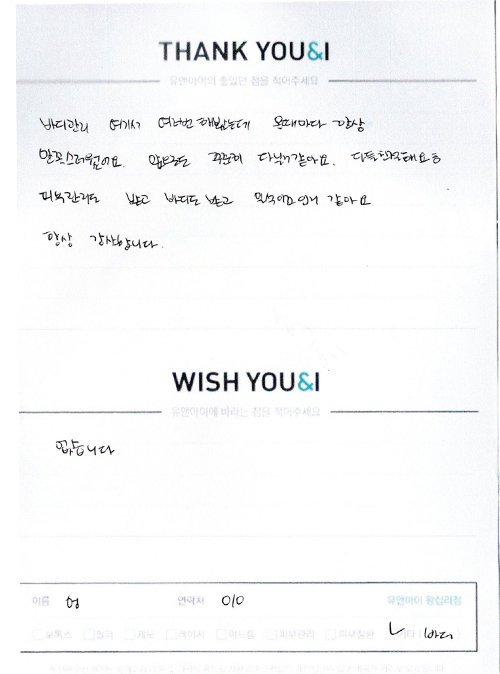 THANK YOU&I
유앤아이의 좋았던 점을 적어주세요
바디관리 여기서 여러번 해봤는데 올때마다 항상
만족스러웠어요. 앞으로도 꾸준히 다닐거같아요. 다들친절해요
피부관리도 받고 바디도 받고 일석이조인거 같아요
항상 감사합니다.
WISH YOU&I
유앤아이에 바라는 점을 적어주세요
없습니다
이름 연락처 010 유앤아이 왕십리점
보톡스 필러 제모 레이저 여드름 피부관리 피부질환 기타 ( 바디